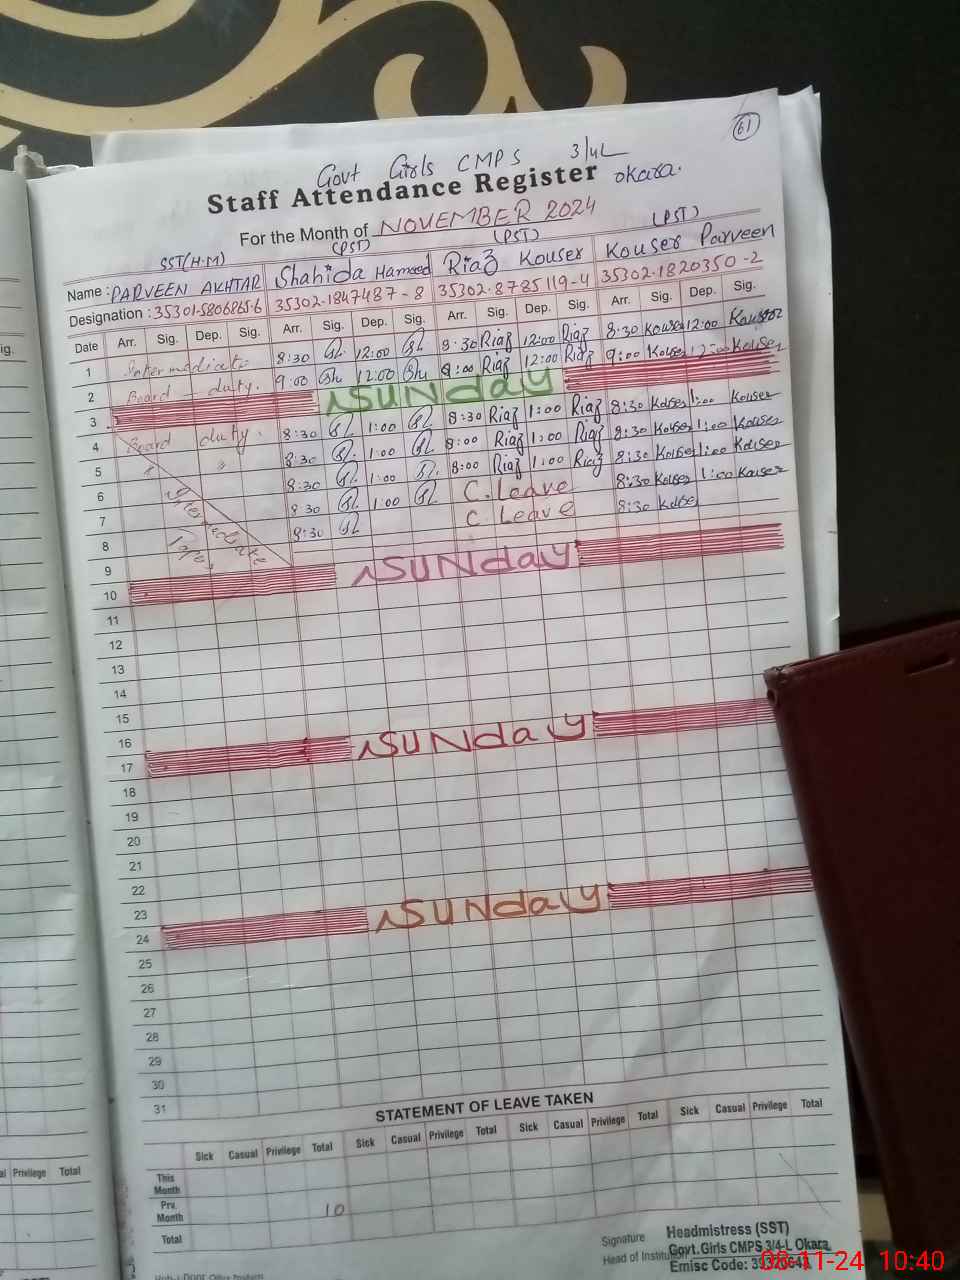 61
Govt Girls CMPS 3/4L okara.
Staff Attendance Register
For the Month of NOVEMBER 2024
SST(H.M) (PST) (PST) (PST)
Name : PARVEEN AKHTAR Shahida Hameed Riaz Kouser Kouser Parveen
Designation : 35301-5806865-6 35302-1847487-8 35302-8785119-4 35302-1820350-2
Date Arr. Sig. Dep. Sig. Arr. Sig. Dep. Sig. Arr. Sig. Dep. Sig. Arr. Sig. Dep. Sig.
1 Intermediate 8:30 Sh. 12:00 Sh. 8:30 Riaz 12:00 Riaz 8:30 Kouser 12:00 Kouser
2 Board duty. 9:00 Sh 12:00 Sh 9:00 Riaz 12:00 Riaz 9:00 Kouser 12:00 Kouser
3 SUNday
4 Board duty. 8:30 1:00 8:30 Riaz 1:00 Riaz 8:30 Kouser 1:00 Kouser
5 " " 8:30 1:00 8:00 Riaz 1:00 Riaz 8:30 Kouser 1:00 Kouser
6 8:30 1:00 8:00 Riaz 1:00 Riaz 8:30 Kouser 1:00 Kouser
7 8:30 1:00 C. Leave 8:30 Kouser 1:00 Kouser
8 8:30 C. Leave 8:30 Kouser
9
10 SUNday
11
12
13
14
15
16
17 SUNday
18
19
20
21
22
23
24 SUNday
25
26
27
28
29
30
31
STATEMENT OF LEAVE TAKEN
Sick Casual Privilege Total Sick Casual Privilege Total Sick Casual Privilege Total Sick Casual Privilege Total
This Month
Prv. Month 10
Total
Signature
Head of Institution
Headmistress (SST)
Govt. Girls CMPS 3/4-L Okara
Emisc Code:
08-11-24 10:40
ig.
Privilege Total